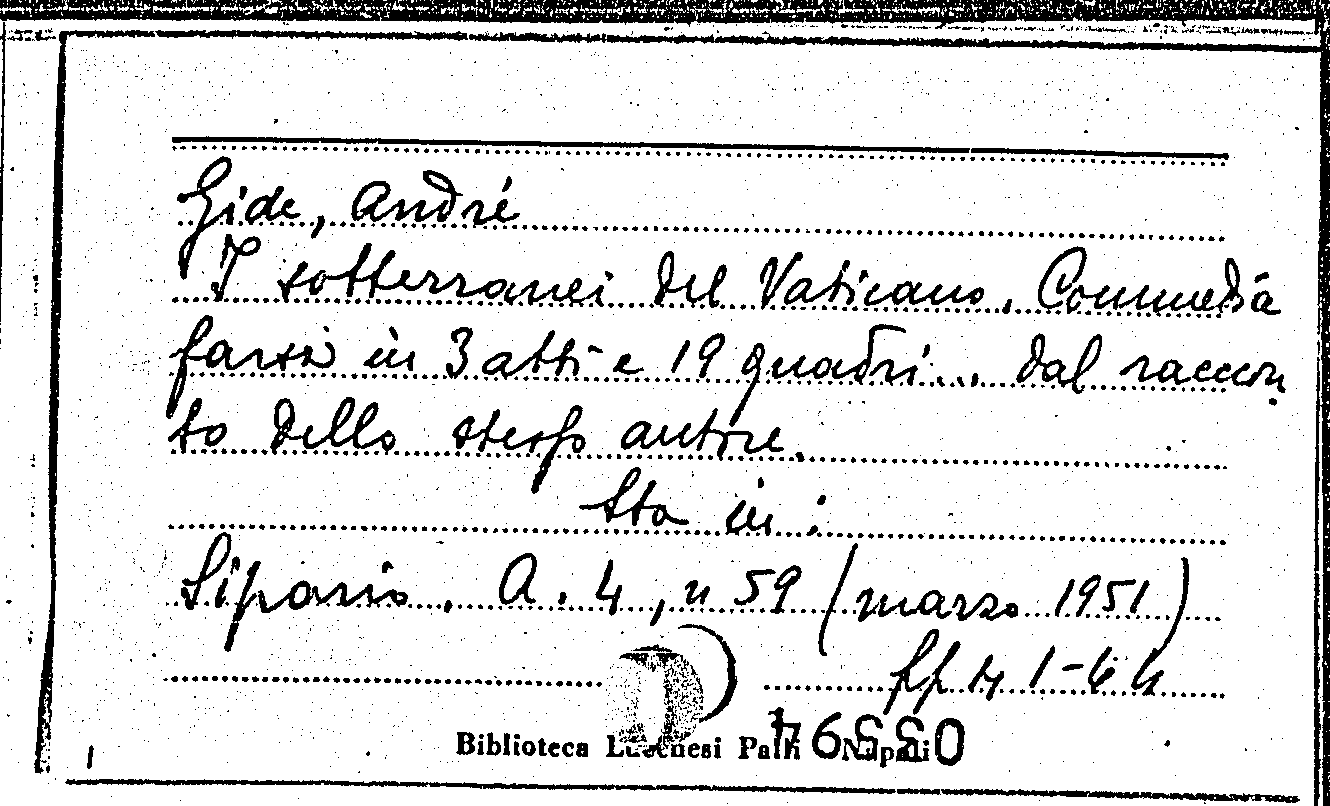 Gide, André
I sotterranei del Vaticano. Commedia
farsa in 3 atti e 19 quadri... dal raccon
to dello stesso autore.
Sta in:
Sipario. A. 4, n 59 (marzo 1951)
pp 41-64
Biblioteca Lucchesi Palli Napoli